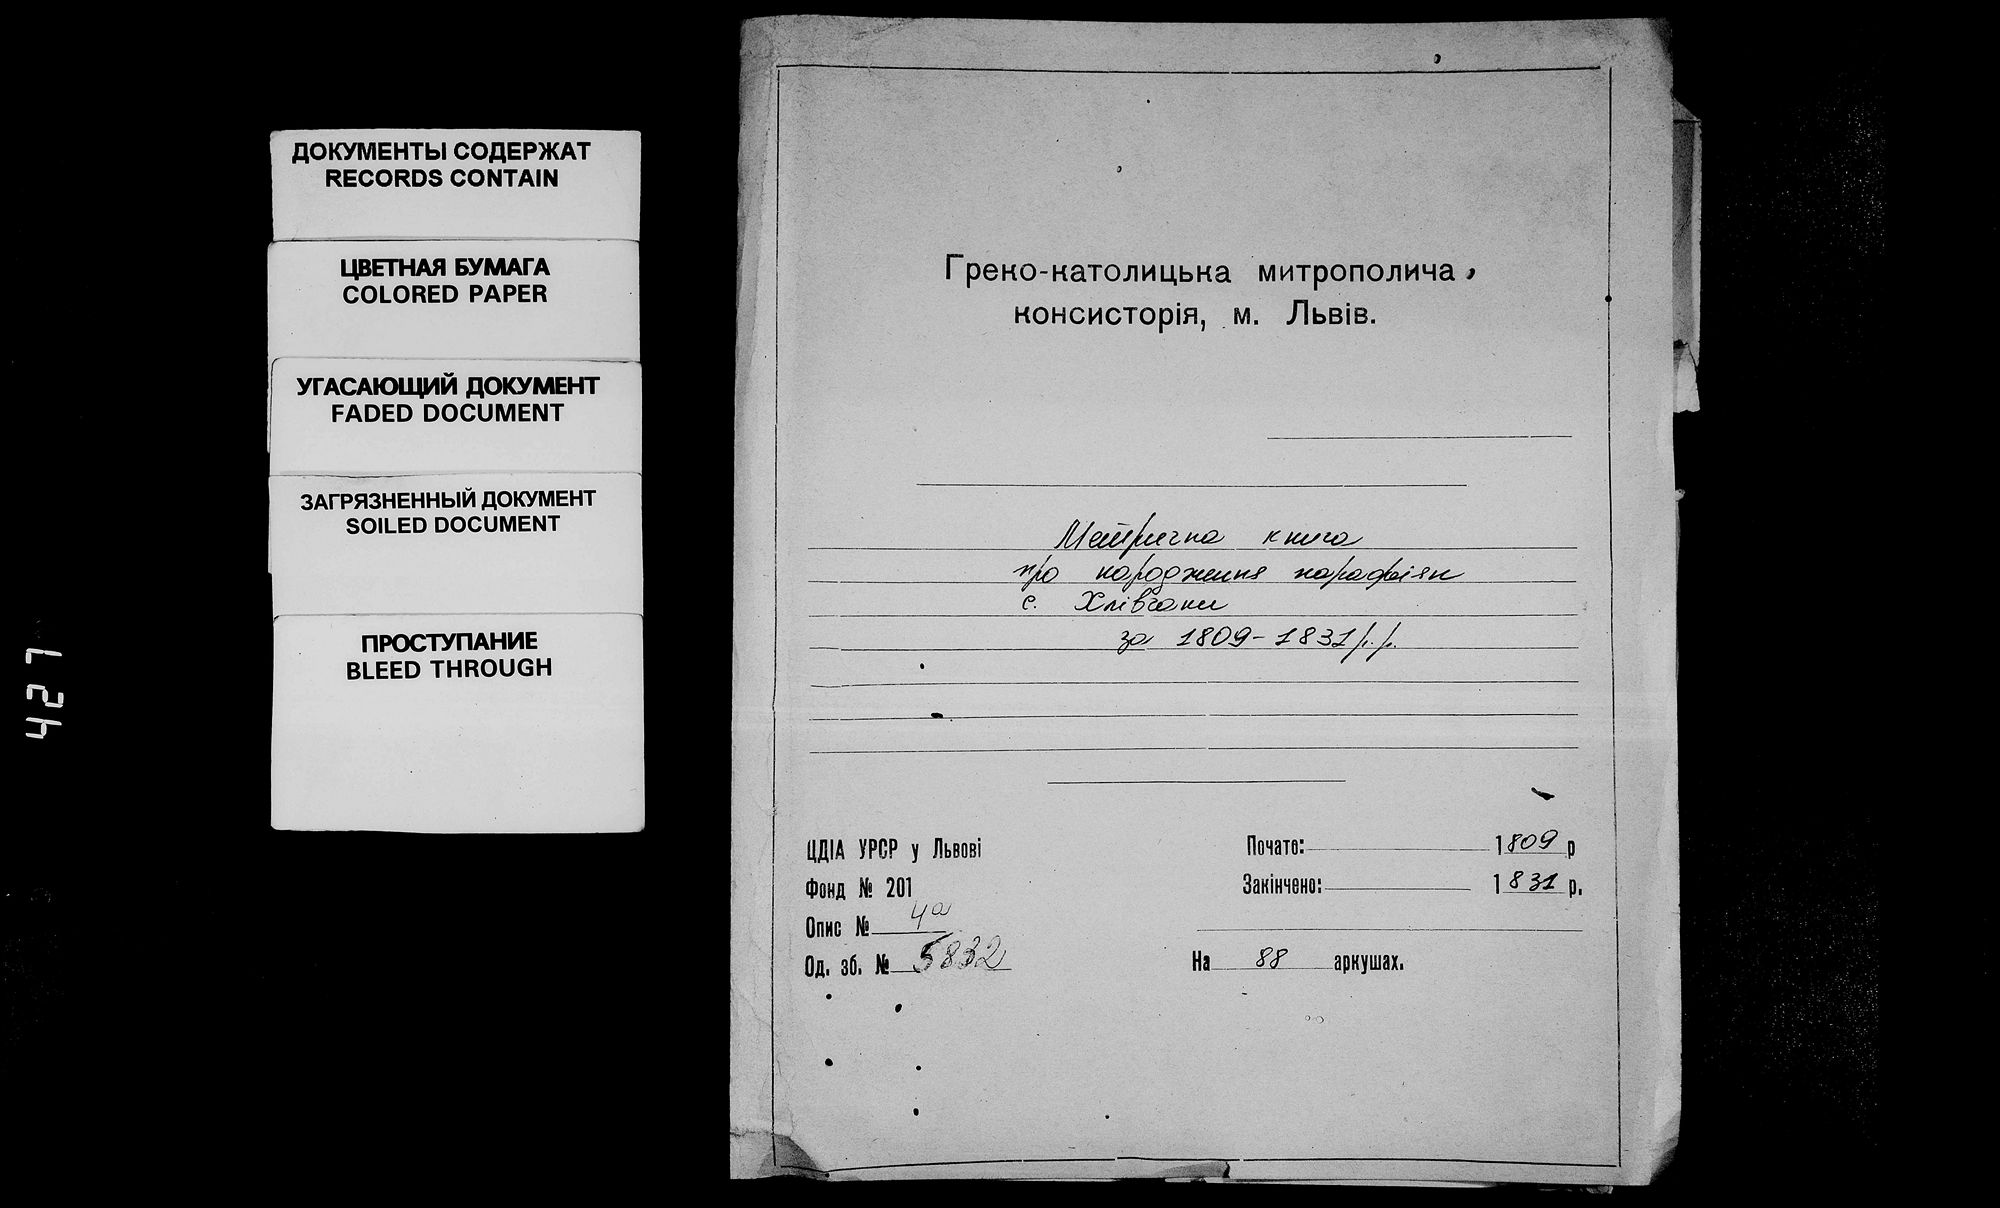 ДОКУМЕНТЫ СОДЕРЖАТ
RECORDS CONTAIN
ЦВЕТНАЯ БУМАГА
COLORED PAPER
УГАСАЮЩИЙ ДОКУМЕНТ
FADED DOCUMENT
ЗАГРЯЗНЕННЫЙ ДОКУМЕНТ
SOILED DOCUMENT
ПРОСТУПАНИЕ
BLEED THROUGH
421
Греко-католицька митрополича
консисторія, м. Львів.
Метрична книга
про народження парафіян
с. Хлівчани
за 1809-1831 р.р.
ЦДІА УРСР у Львові
Фонд № 201
Опис № 4а
Од. зб. № 5832
Почате: 1809 р
Закінчено: 1831 р.
На 88 аркушах.